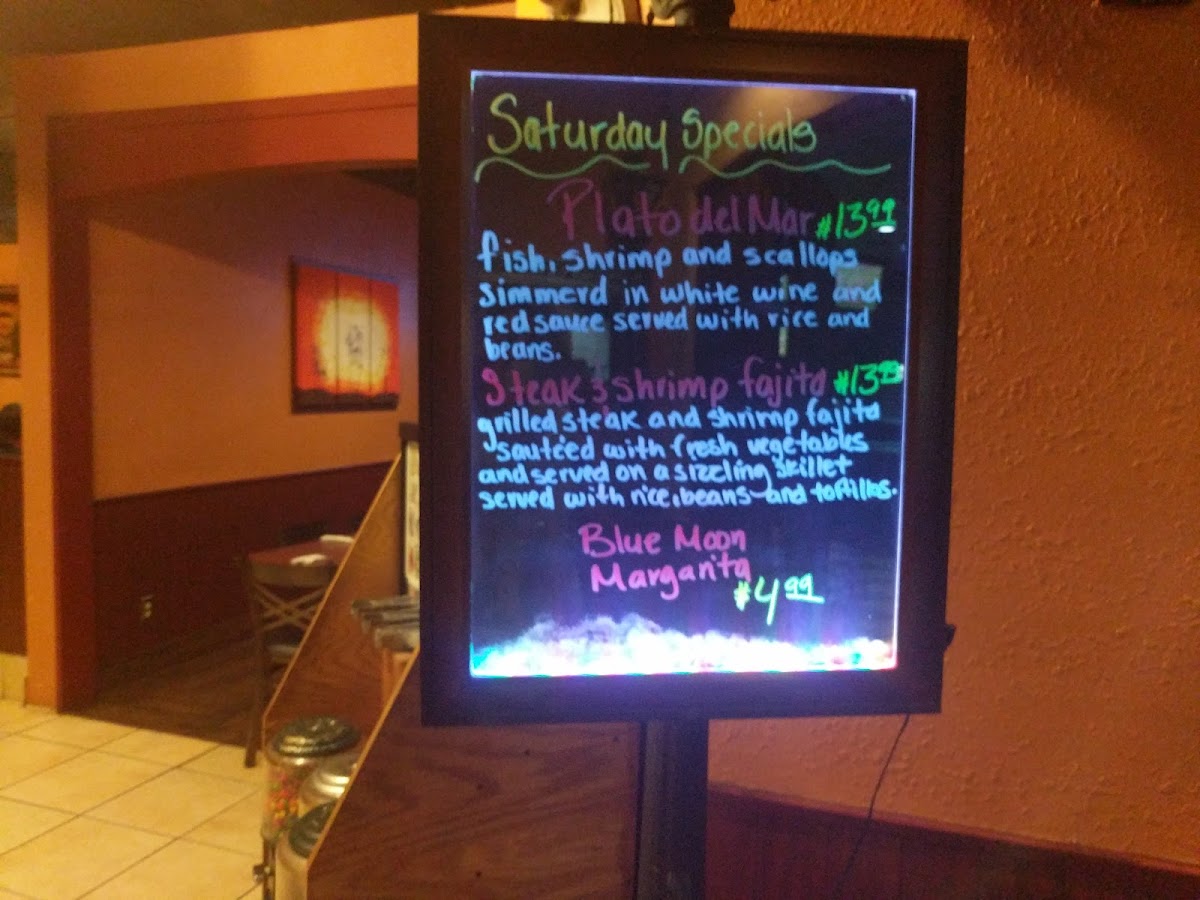 Saturday Specials
Plato del Mar $13.99
fish, shrimp and scallops
simmerd in white wine and
red sauce served with rice and
beans.
Steak & shrimp fajita $13.99
grilled steak and shrimp fajita
sautéed with fresh vegetables
and served on a sizzling skillet
served with rice, beans and tortillas.
Blue Moon
Margarita
$4.99